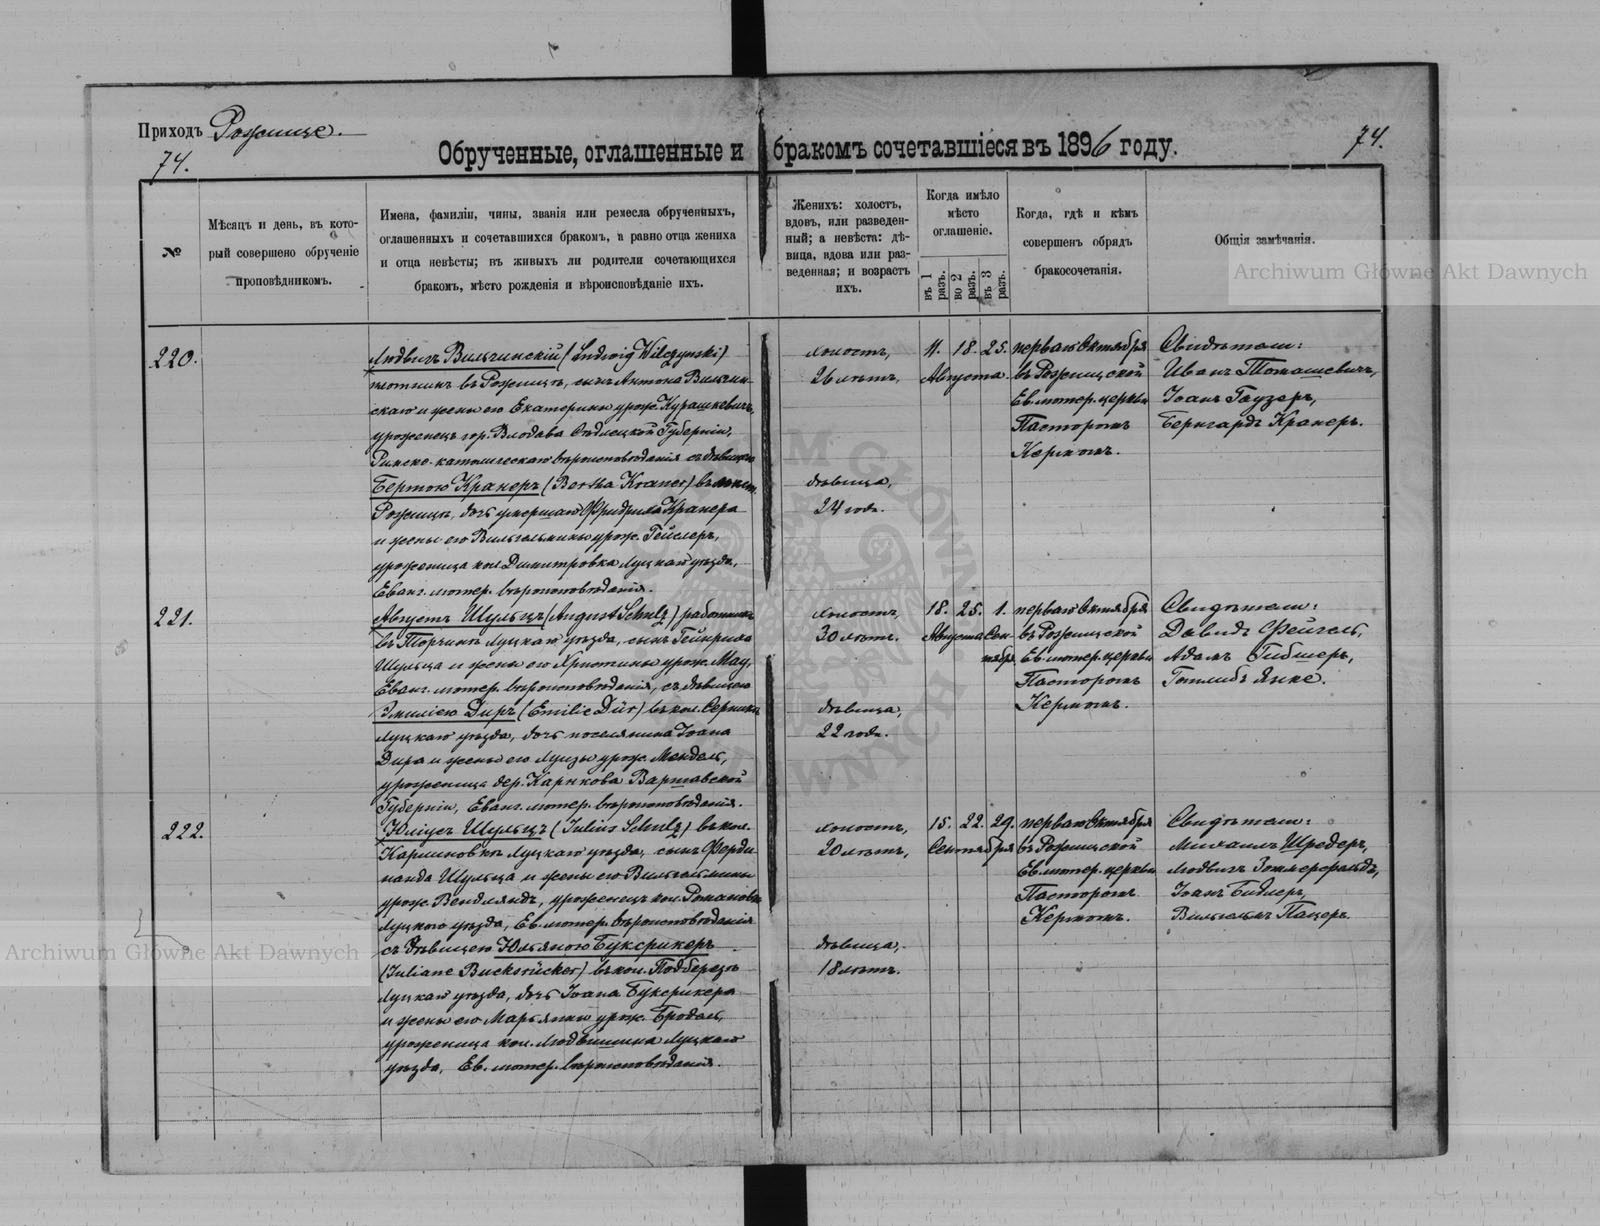 Приходъ Рожище.
74.
74.
Обрученные, оглашенные и бракомъ сочетавшіеся въ 1896 году.
№
Мѣсяцъ и день, въ кото-
рый совершено обрученіе
проповѣдникомъ.
Имена, фамиліи, чины, званія или ремесла обрученныхъ,
оглашенныхъ и сочетавшихся бракомъ, а равно отца жениха
и отца невѣсты; въ живыхъ ли родители сочетающихся
бракомъ, мѣсто рожденія и вѣроисповѣданіе ихъ.
Женихъ: холостъ,
вдовъ, или разведен-
ный; а невѣста: дѣ-
вица, вдова или раз-
веденная; и возрастъ
ихъ.
Когда имѣло
мѣсто
оглашеніе.
въ 1 разъ.
во 2 разъ.
въ 3 разъ.
Когда, гдѣ и кѣмъ
совершенъ обрядъ
бракосочетанія.
Общія замѣчанія.
Archiwum Główne Akt Dawnych
220.
Людвигъ Вильчинскій (Ludwig Wilczynski)
плотникъ въ Рожищѣ, сынъ Антона Вильчин-
скаго и жены его Екатерины урож. Курашкевичъ,
уроженецъ гор. Влодава Сѣдлецкой Губерніи,
Римско-католическаго вѣроисповѣданія съ дѣвицею
Бертою Кранеръ (Bertha Kraner) въ мѣст.
Рожищѣ, дочь умершаго Фридриха Кранера
и жены его Вильгельмины урож. Гейслеръ,
уроженица кол. Димитровка Луцкаго уѣзда,
Еванг. лютер. вѣроисповѣданія.
холостъ,
26 лѣтъ,
дѣвица,
24 года.
11. 18. 25.
Августа
перваго Октября
въ Рожищской
Ев. лютер. церкви
Пасторомъ
Кермомъ.
Свидѣтели:
Иванъ Томашевичъ,
Іоанъ Гаузеръ,
Бернгардъ Кранеръ.
221.
Августъ Шульцъ (August Schulz) работникъ
въ Торчинѣ Луцкаго уѣзда, сынъ Гейнриха
Шульца и жены его Христины урож. Мау,
Еванг. лютер. вѣроисповѣданія, съ дѣвицею
Эмиліею Диръ (Emilie Dür) въ кол. Серники
Луцкаго уѣзда, дочь поселянина Іоана
Дира и жены его Луизы урож. Мендель,
уроженица дер. Карнкова Варшавской
Губерніи, Еванг. лютер. вѣроисповѣданія.
холостъ,
30 лѣтъ.
дѣвица,
22 года.
18. 25. 1.
Августа Сен-
тября
перваго Октября
въ Рожищской
Ев. лютер. церкви
Пасторомъ
Кермомъ.
Свидѣтели:
Давидъ Фейгель,
Адамъ Гибнеръ,
Готлибъ Янке.
222.
Юліусъ Шульцъ (Julius Schulz) въ кол.
Карлиновкѣ Луцкаго уѣзда, сынъ Ферди-
нанда Шульца и жены его Вильгельмины
урож. Вендляндъ, уроженецъ кол. Романовка
Луцкаго уѣзда, Ев. лютер. вѣроисповѣданія
съ дѣвицею Юльяною Буксрикеръ
(Juliane Bucksrücker) въ кол. Подберезье
Луцкаго уѣзда, дочь Іоана Буксрикера
и жены его Марьянны урож. Бродель,
уроженица кол. Людвишина Луцкаго
уѣзда, Ев. лютер. вѣроисповѣданія.
холостъ,
20 лѣтъ,
дѣвица,
18 лѣтъ.
15. 22. 29.
Сентября
перваго Октября
въ Рожищской
Ев. лютер. церкви
Пасторомъ
Кермомъ.
Свидѣтели:
Михаилъ Шредеръ,
Людвигъ Зоммерфельдъ,
Іоанъ Бидлеръ,
Вильгельмъ Пацеръ.
Archiwum Główne Akt Dawnych